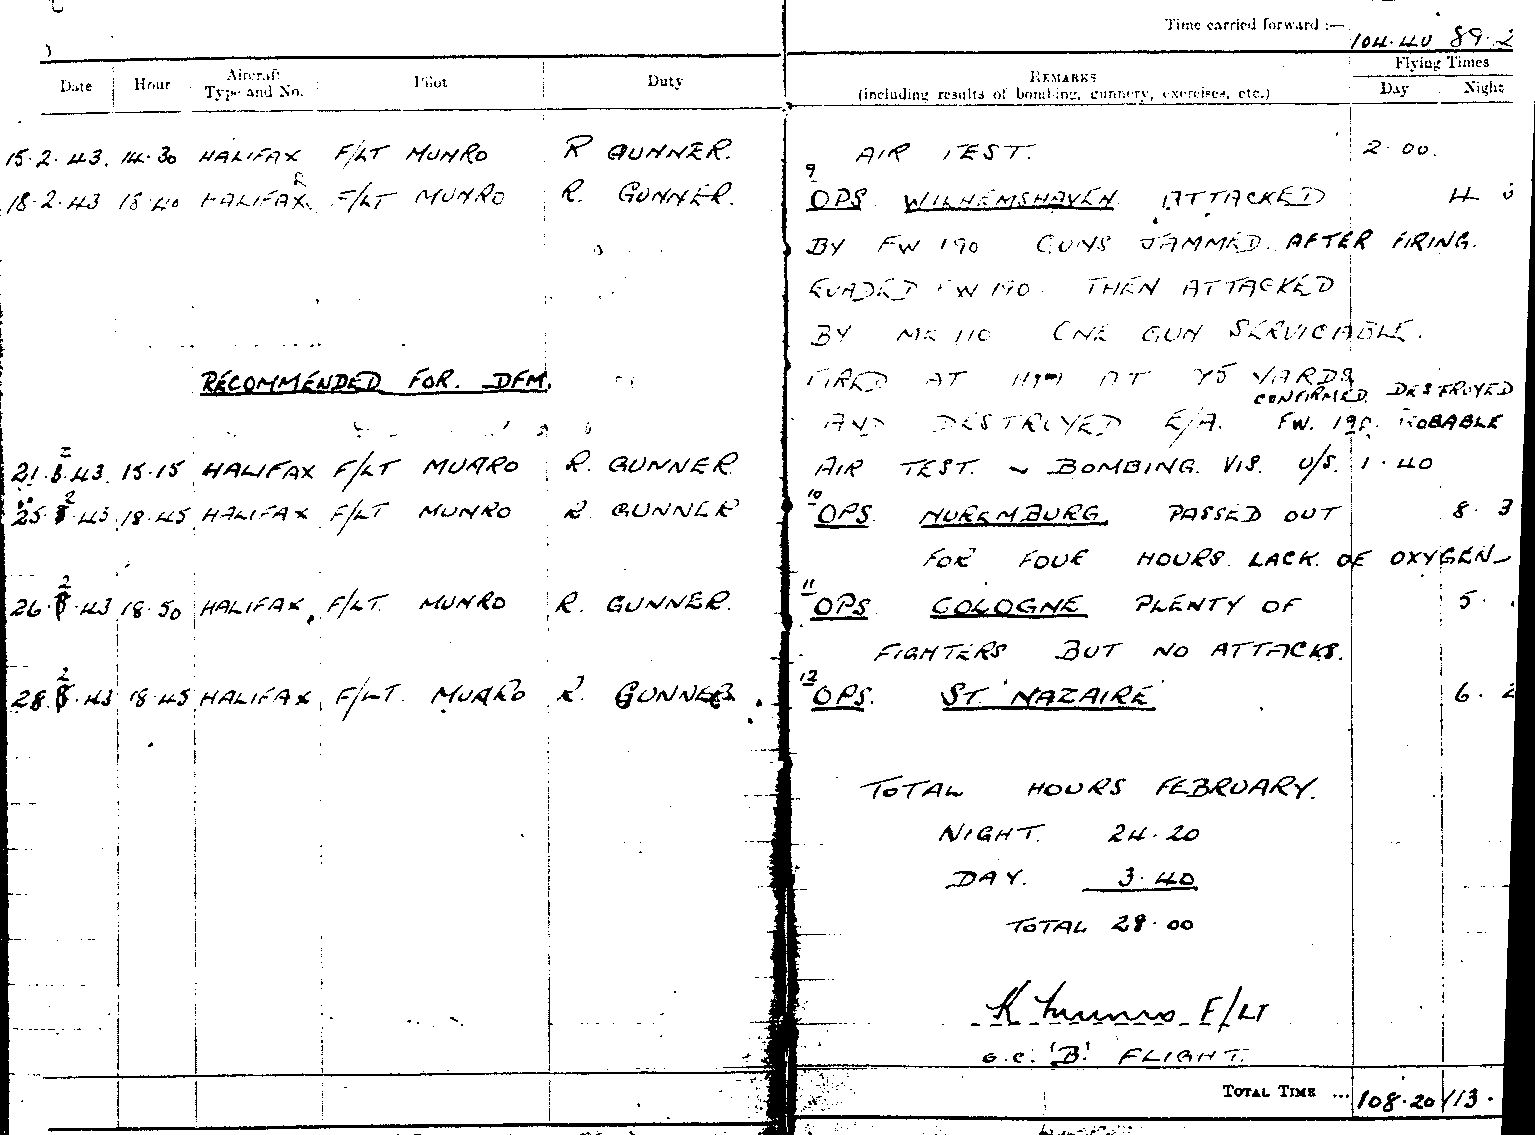 Time carried forward :— 104.40 89.2
Date Hour Aircraft Type and No. Pilot Duty REMARKS (including results of bombing, gunnery, exercises, etc.) Flying Times Day Night
15.2.43. 14.30 HALIFAX F/LT MUNRO R GUNNER. AIR TEST. 2.00.
18.2.43 18.40 HALIFAX R F/LT MUNRO R. GUNNER. 9 OPS. WILHEMSHAVEN ATTACKED 4
BY FW 190 GUNS JAMMED. AFTER FIRING.
EVADED FW 190. THEN ATTACKED
BY ME 110 ONE GUN SERVICABLE.
RECOMMENDED FOR. DFM. FIRED AT AT 75 YARDS
CONFIRMED. DESTROYED
AND DESTROYED E/A. FW. 190. PROBABLE
21.2.43. 15.15 HALIFAX F/LT MUNRO R. GUNNER AIR TEST. ~ BOMBING. VIS. U/S. 1.40
25.2.43 18.45 HALIFAX F/LT MUNRO R GUNNER 10 OPS. NUREMBURG. PASSED OUT 8.3
FOR FOUR HOURS. LACK. OF OXYGEN
26.2.43 18.50 HALIFAX F/LT. MUNRO R. GUNNER. 11 OPS. COLOGNE PLENTY OF 5.
FIGHTERS BUT NO ATTACKS.
28.2.43 18.45 HALIFAX F/LT. MUNRO R. GUNNER. 12 OPS. ST. NAZAIRE 6.2
TOTAL HOURS FEBRUARY.
NIGHT. 24.20
DAY. 3.40
TOTAL 28.00
K Munro F/LT
O.C. 'B' FLIGHT.
TOTAL TIME ... 108.20 113.